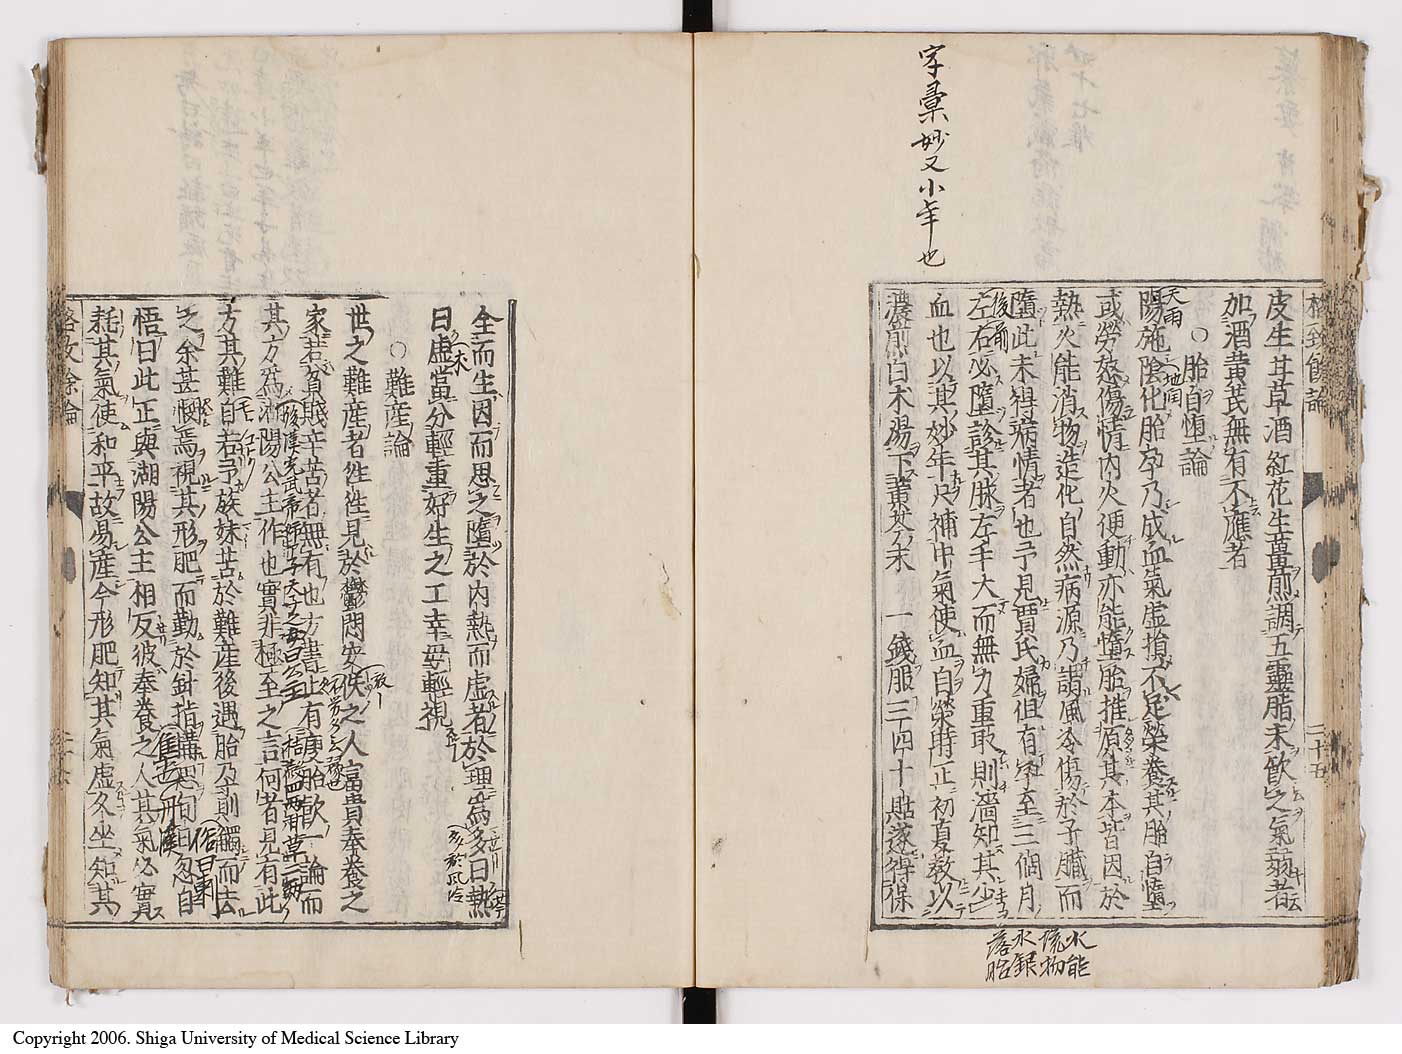 字彙妙又小年也
格致餘論
二十五
皮生甘草酒紅花生薑煎調五靈脂末飲之氣弱者
加酒黃芪無有不應者
○胎自墮論
陽施陰化胎孕乃成血氣虛損不足榮養其胎自墮
天雨
地潤
或勞怒傷情內火便動亦能墮胎推原其本皆因於
熱火能消物造化自然病源乃謂風冷傷於子臟而
墮此未得病情者也予見賈氏婦但有孕至三個月
左右必墮診其脉左手大而無力重取則濇知其少
後前
血也以其妙年只補中氣使血自榮時正初夏教以
濃煎白朮湯下黃芩末一錢服三四十貼遂得保
水能
流物
水銀
落胎
全而生因而思之墮於內熱而虛者於理為多曰熱
多於風冷
曰虛當分輕重好生之工幸毋輕視
未
○難產論
世之難產者徃徃見於鬱悶安佚之人富貴奉養之
家若貧賤辛苦者無有也方書止有瘦胎飲一論而
其方為湖陽公主作也實非極至之言何者見有此
方其難自若予族妹苦於難產後遇胎孕則觸而去
之余甚憫焉視其形肥而勤於針指搆思旬日忽自
悟曰此正與湖陽公主相反彼奉養之人其氣必實
耗其氣使和平故易產今形肥知其氣虛久坐知其
格致餘論